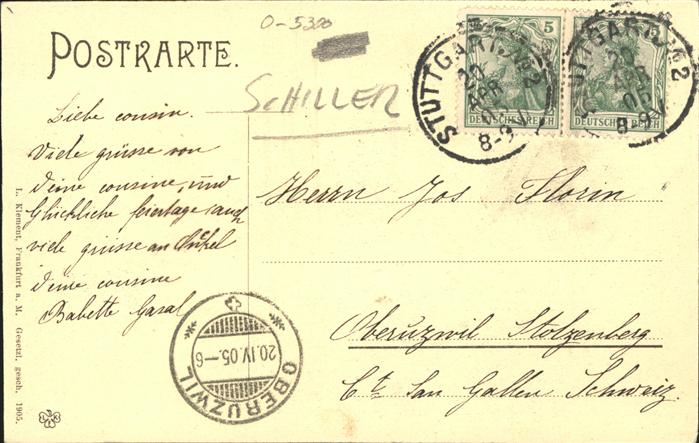 0-5300
POSTKARTE.
SCHILLER
5
DEUTSCHES REICH
DEUTSCHES REICH
STUTTGART
20
APR
05
8-9
STUTTGART
20
APR
05
8-9
Liebe cousin.
Viele grüsse von
deine cousine, und
Glückliche feiertage auch
viele grüsse an Onkel
deine cousine
Babette Gasal
Herrn Jos Florin
Oberuzwil Stolzenberg
Ct. San Gallen Schweiz.
OBERUZWIL
20.IV.05.-6
L. Klement, Frankfurt a. M. Gesetzl. gesch. 1905.